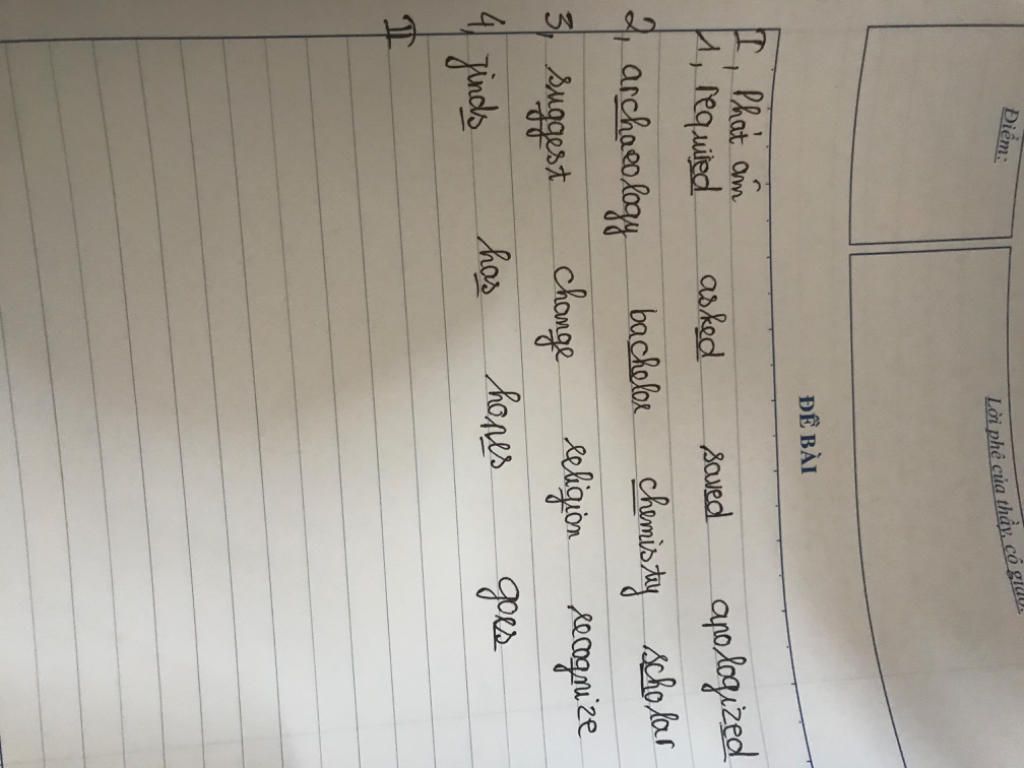 Điểm:
Lời phê của thầy, cô giáo:
ĐỀ BÀI
I, Phát âm
1, required asked saved apologized
2, archaeology bachelor chemistry scholar
3, suggest change religion recognize
4, finds has hopes goes
II